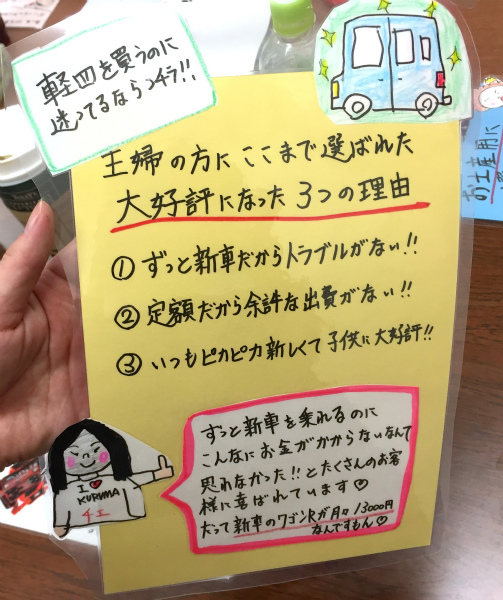 軽四を買うのに
迷ってるならコチラ!!
主婦の方にここまで選ばれた
大好評になった3つの理由
① ずっと新車だからトラブルがない!!
② 定額だから余計な出費がない!!
③ いつもピカピカ新しくて子供に大好評!!
ずっと新車を乗れるのに
こんなにお金がかからないなんて
思わなかった!!とたくさんのお客
様に喜ばれています♡
だって新車のワゴンRが月々13000円
なんですもん♡
I ♥
KURUMA
チエ
お土産用に